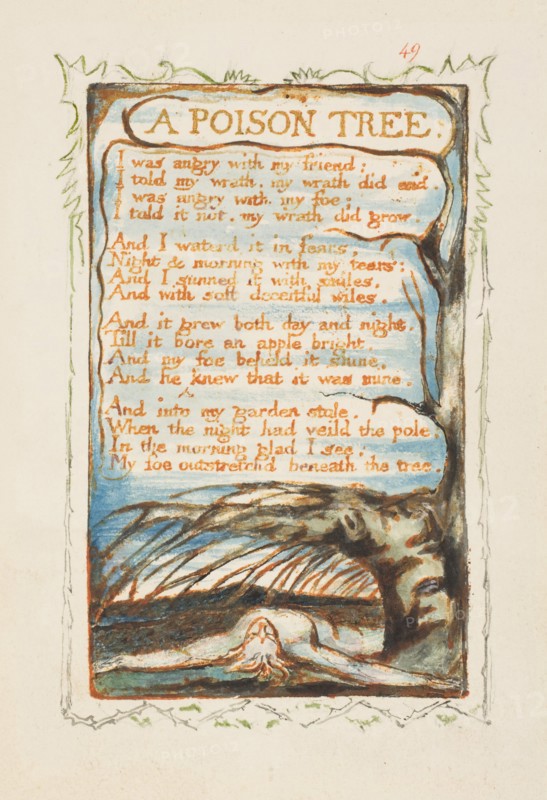 49
A POISON TREE.
I was angry with my friend;
I told my wrath, my wrath did end.
I was angry with my foe:
I told it not, my wrath did grow.
And I waterd it in fears,
Night & morning with my tears:
And I sunned it with smiles,
And with soft deceitful wiles.
And it grew both day and night.
Till it bore an apple bright.
And my foe beheld it shine,
And he knew that it was mine.
And into my garden stole.
When the night had veild the pole
In the morning glad I see;
My foe outstretchd beneath the tree.